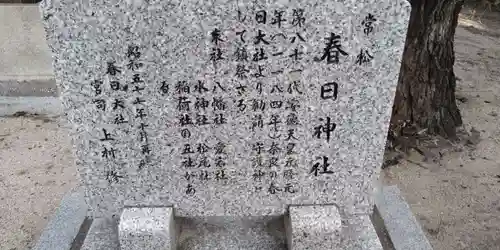 常松
春日神社
第八十一代安徳天皇元暦元
年(一一八四年)奈良の春
日大社より勧請 守護神と
して鎮祭さる
末社 八幡社 愛宕社
水神社 松尾社
稲荷社の五社があ
る
昭和五十七年十月
春日大社
宮司